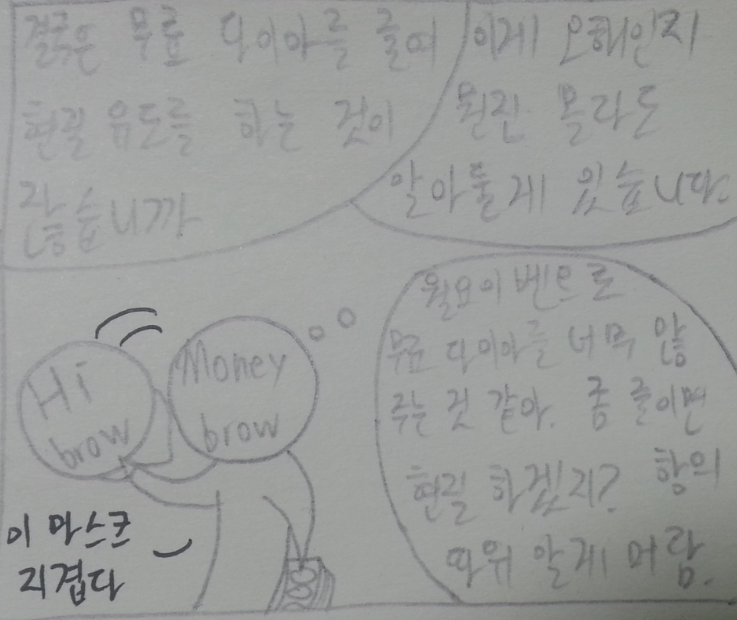 결국은 무료 다이아를 줄여
현질 유도를 하는 것이
잖습니까
이게 오해인지
뭔진 몰라도
알아둘게 있습니다
월요이벤트로
무료 다이아를 너무 많
주는 것 같아. 좀 줄이면
현질 하겠지? 항의
따위 알게 머람.
Hi
brow
Money
brow
이 마스크
지겹다